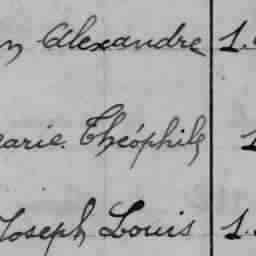 n Alexandre 1.
arie. Théophile 1
Joseph Louis 1.